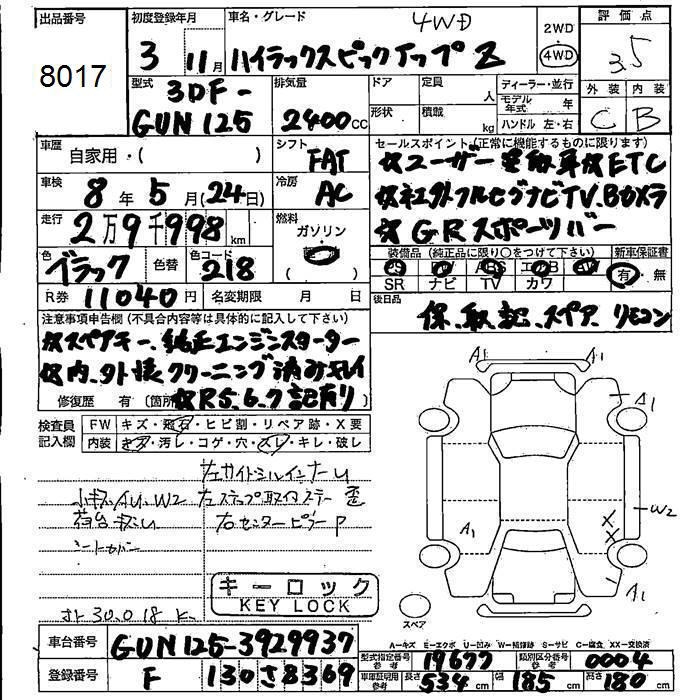 出品番号
8017
初度登録年月
3 11月
車名・グレード
4WD
ハイラックスピックアップ Z
2WD
4WD
評価点
3.5
外装 内装
C B
型式
3DF-
GUN125
排気量
2400cc
ドア 定員 人
形状 積載 kg
ディーラー・並行
モデル年式 年
ハンドル 左・右
車歴
自家用・( )
シフト
FAT
セールスポイント(正常に機能するものに限ります)
☆ユーザー買取車☆ETC
☆社外フルセグナビTV.Bカメラ
☆GRスポーツバー
車検
8年5月(24日)
冷房
AC
走行
2万9千998km
燃料
ガソリン
( )
色
ブラック
色替
色コード
218
装備品(純正品に限り○をつけて下さい)
PS PW ABS エアB AW
SR ナビ TV カワ
新車保証書
有・無
R券 11040円
名変期限 月 日
後日品
保、取、記、スペア、リモコン
注意事項申告欄(不具合内容等は具体的に記入して下さい)
☆スペアキー、純正エンジンスターター
☆内、外装クリーニング済みキレイ
修復歴 有(箇所
☆R5.6.7記有り)
検査員記入欄
FW キズ・飛石・ヒビ割・リペア跡・X要
内装 キズ・汚レ・コゲ・穴・スレ・キレ・破レ
左サイドシルインナーU
小キズ、AU、W2
左ステップ取付ステー歪
荷台キズU
右センターピラーP
シートカバー
キーロック
KEY LOCK
A1 A1
A1
W2
A1
X
X
A1
スペア
A-キズ E-エクボ U-凹み W-補修跡 S-サビ C-腐食 XX-交換済
車台番号
GUN125-3929937
型式指定番号 参考
19677
類別区分番号 参考
0004
登録番号
F 130さ8369
車庫証明用 参考
長さ 534cm
幅 185cm
高さ 180cm